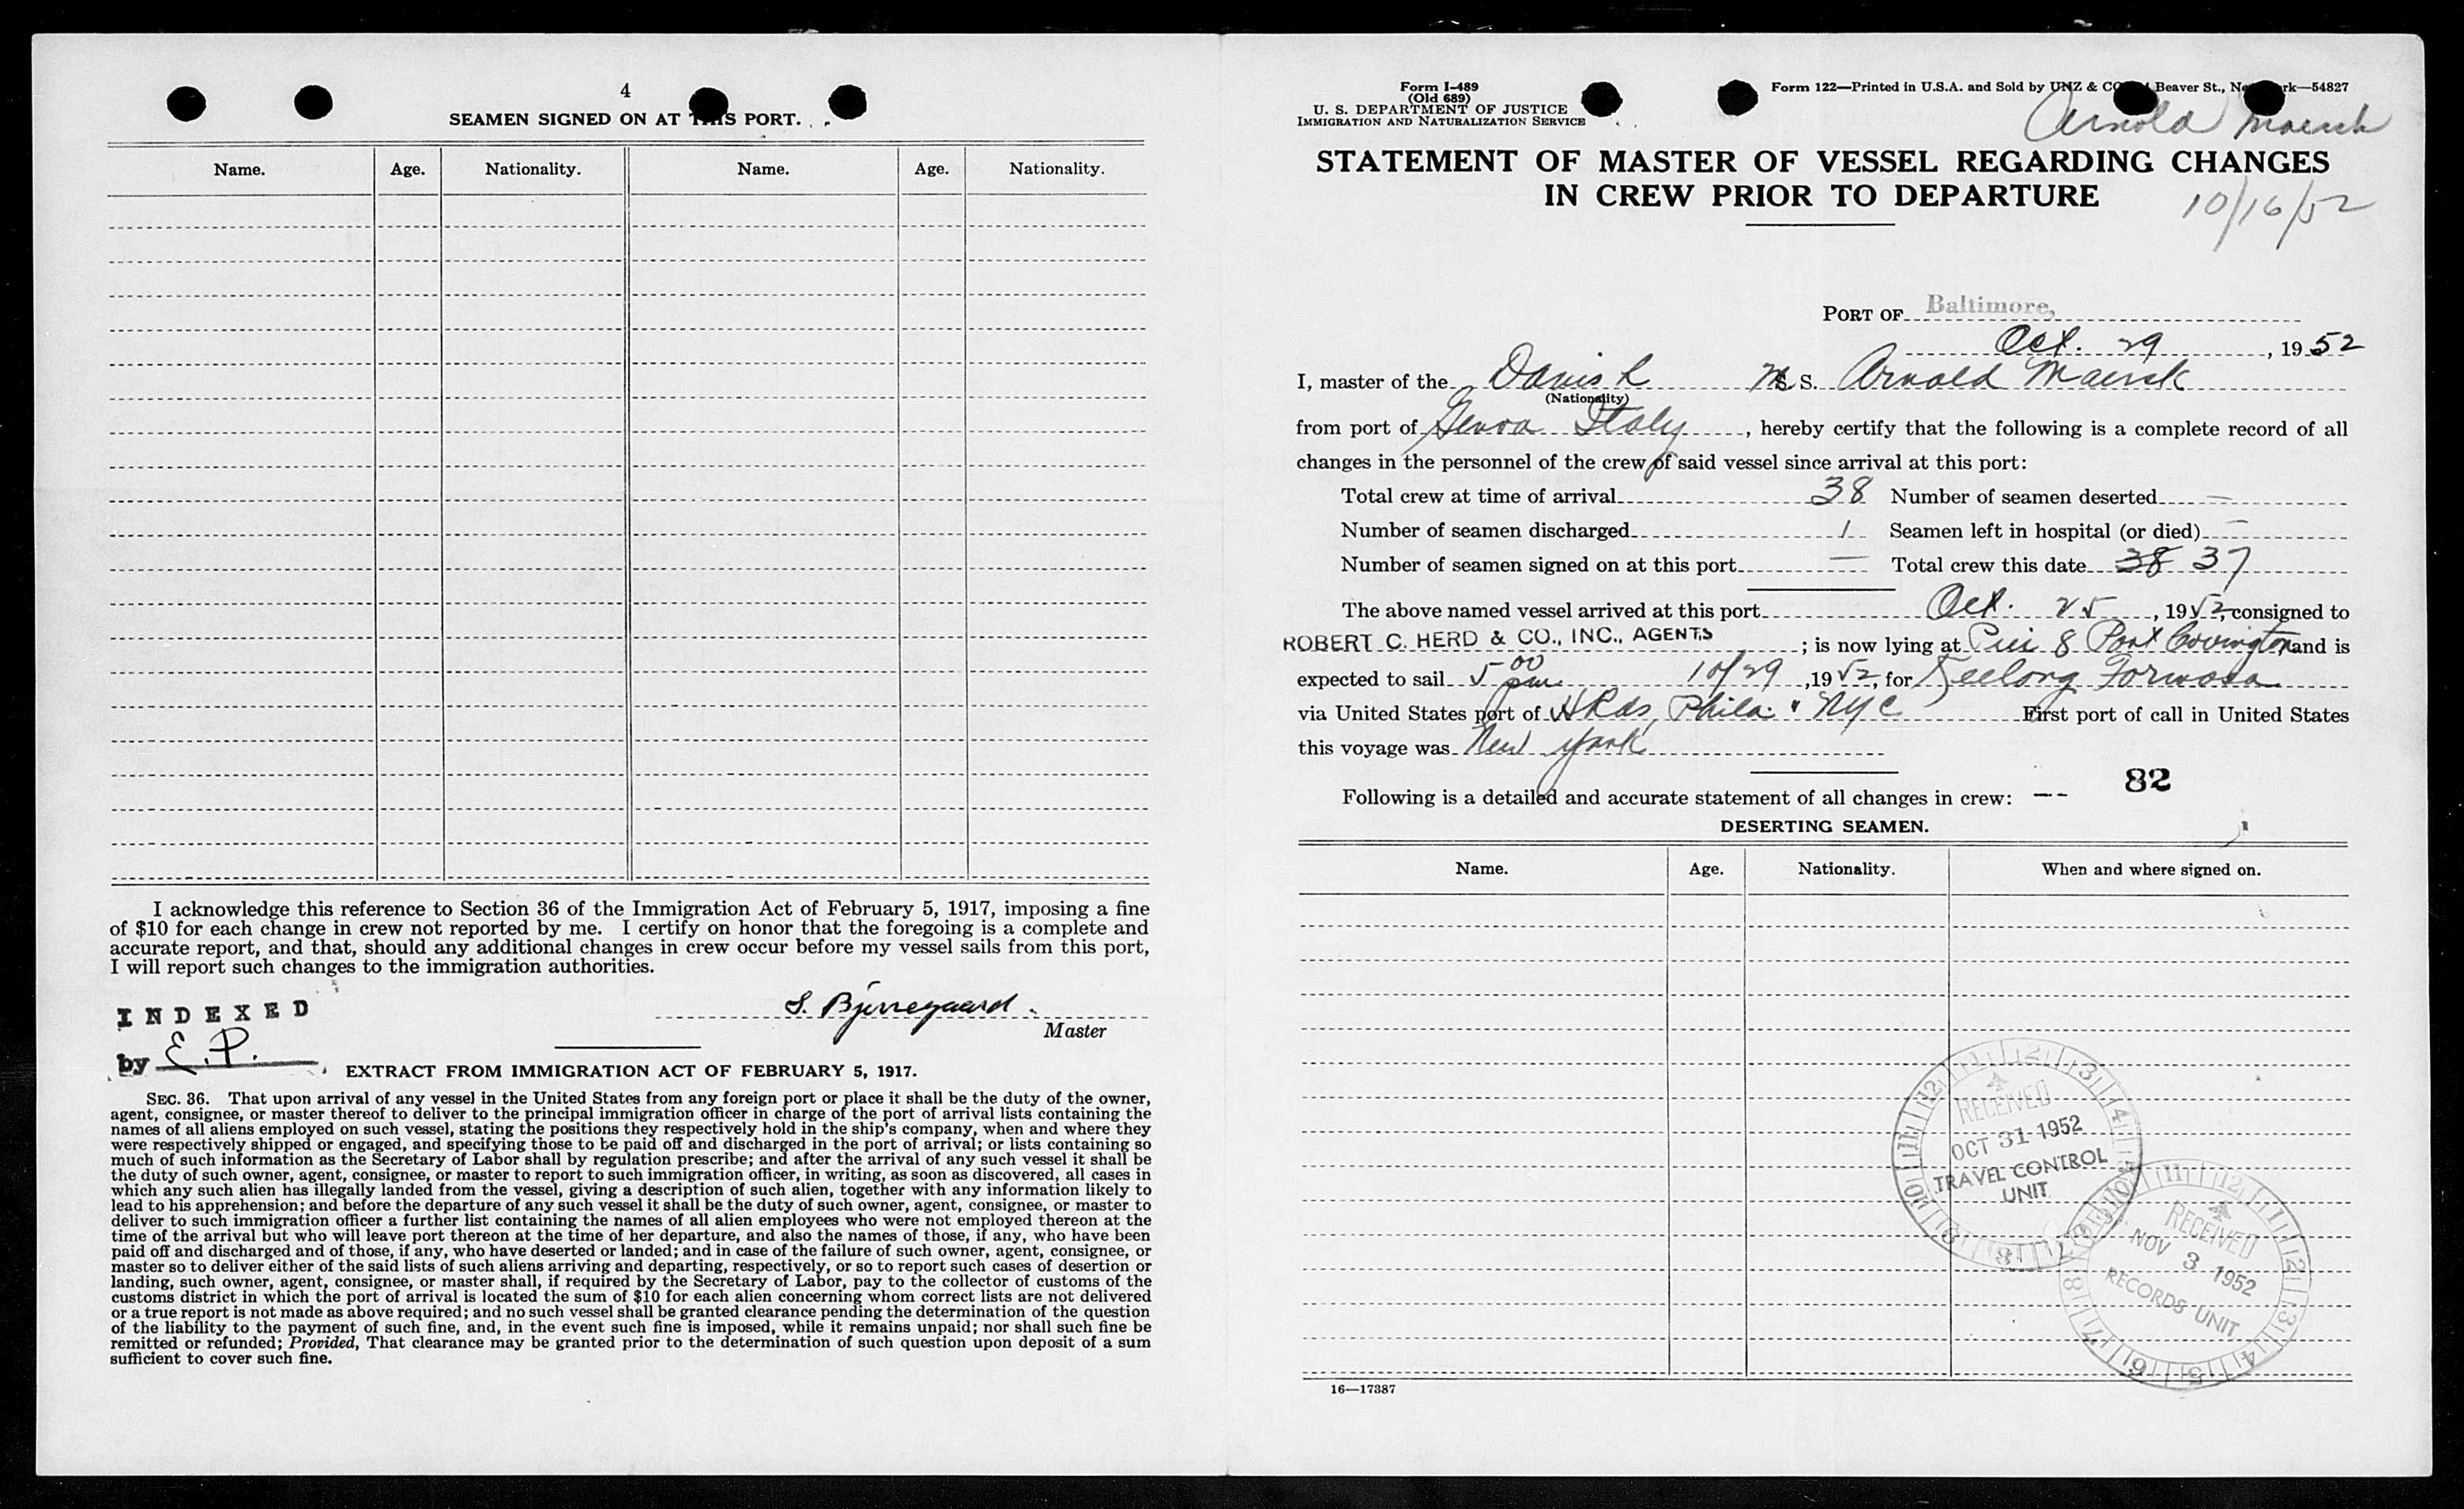 4
SEAMEN SIGNED ON AT THIS PORT.
Name. Age. Nationality. Name. Age. Nationality.
I acknowledge this reference to Section 36 of the Immigration Act of February 5, 1917, imposing a fine
of $10 for each change in crew not reported by me. I certify on honor that the foregoing is a complete and
accurate report, and that, should any additional changes in crew occur before my vessel sails from this port,
I will report such changes to the immigration authorities.
INDEXED
by E.P.
S. Bjerregaard
Master
EXTRACT FROM IMMIGRATION ACT OF FEBRUARY 5, 1917.
SEC. 36. That upon arrival of any vessel in the United States from any foreign port or place it shall be the duty of the owner,
agent, consignee, or master thereof to deliver to the principal immigration officer in charge of the port of arrival lists containing the
names of all aliens employed on such vessel, stating the positions they respectively hold in the ship's company, when and where they
were respectively shipped or engaged, and specifying those to be paid off and discharged in the port of arrival; or lists containing so
much of such information as the Secretary of Labor shall by regulation prescribe; and after the arrival of any such vessel it shall be
the duty of such owner, agent, consignee, or master to report to such immigration officer, in writing, as soon as discovered, all cases in
which any such alien has illegally landed from the vessel, giving a description of such alien, together with any information likely to
lead to his apprehension; and before the departure of any such vessel it shall be the duty of such owner, agent, consignee, or master to
deliver to such immigration officer a further list containing the names of all alien employees who were not employed thereon at the
time of the arrival but who will leave port thereon at the time of her departure, and also the names of those, if any, who have been
paid off and discharged and of those, if any, who have deserted or landed; and in case of the failure of such owner, agent, consignee, or
master so to deliver either of the said lists of such aliens arriving and departing, respectively, or so to report such cases of desertion or
landing, such owner, agent, consignee, or master shall, if required by the Secretary of Labor, pay to the collector of customs of the
customs district in which the port of arrival is located the sum of $10 for each alien concerning whom correct lists are not delivered
or a true report is not made as above required; and no such vessel shall be granted clearance pending the determination of the question
of the liability to the payment of such fine, and, in the event such fine is imposed, while it remains unpaid; nor shall such fine be
remitted or refunded; Provided, That clearance may be granted prior to the determination of such question upon deposit of a sum
sufficient to cover such fine.
Form I-489
(Old 689)
U. S. DEPARTMENT OF JUSTICE
IMMIGRATION AND NATURALIZATION SERVICE
Form 122—Printed in U.S.A. and Sold by UNZ & CO. Beaver St., New York—54827
Arnold Maersk
STATEMENT OF MASTER OF VESSEL REGARDING CHANGES
IN CREW PRIOR TO DEPARTURE
10/16/52
PORT OF Baltimore,
Oct. 29, 1952
I, master of the Danish M S. Arnold Maersk
(Nationality)
from port of Genoa Italy, hereby certify that the following is a complete record of all
changes in the personnel of the crew of said vessel since arrival at this port:
Total crew at time of arrival 38 Number of seamen deserted —
Number of seamen discharged 1 Seamen left in hospital (or died) —
Number of seamen signed on at this port — Total crew this date 38 37
The above named vessel arrived at this port Oct. 25, 1952, consigned to
ROBERT C. HERD & CO., INC., AGENTS; is now lying at Pier 8 Port Covington, and is
expected to sail 5 00 pm 10/29, 1952, for Keelong Formosa
via United States port of H Rds, Phila. " NYC First port of call in United States
this voyage was New York
82
Following is a detailed and accurate statement of all changes in crew: --
DESERTING SEAMEN.
Name. Age. Nationality. When and where signed on.
RECEIVED
OCT 31 1952
TRAVEL CONTROL
UNIT
RECEIVED
NOV 3 1952
RECORDS UNIT
16—17387